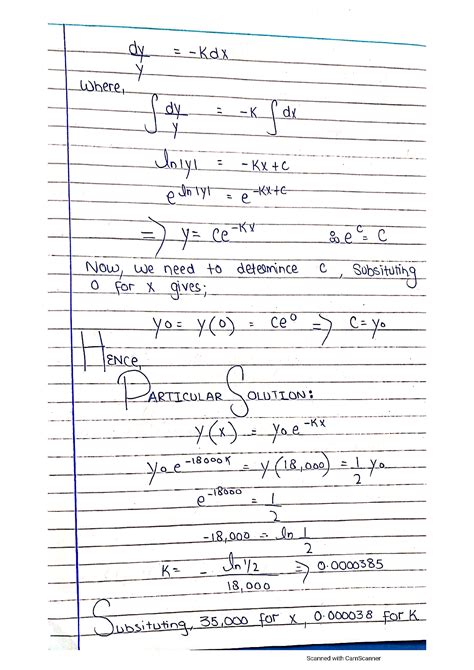 dy/y = -Kdx
Where,
∫ dy/y = -K ∫ dx
ln|y| = -Kx+c
e^ln|y| = e^-Kx+c
=> y = ce^-Kx ∴ e^c = C
Now, we need to determince C, Subsituting
0 for x gives;
y0 = y(0) = ce^0 => C = y0
HENCE,
PARTICULAR SOLUTION:
y(x) = y0e^-Kx
y0e^-18000K = y(18,000) = 1/2 y0
e^-18000 = 1/2
-18,000 = ln 1/2
K = - ln 1/2 / 18,000 => 0.0000385
Subsituting, 35,000 for x, 0.000038 for K
Scanned with CamScanner